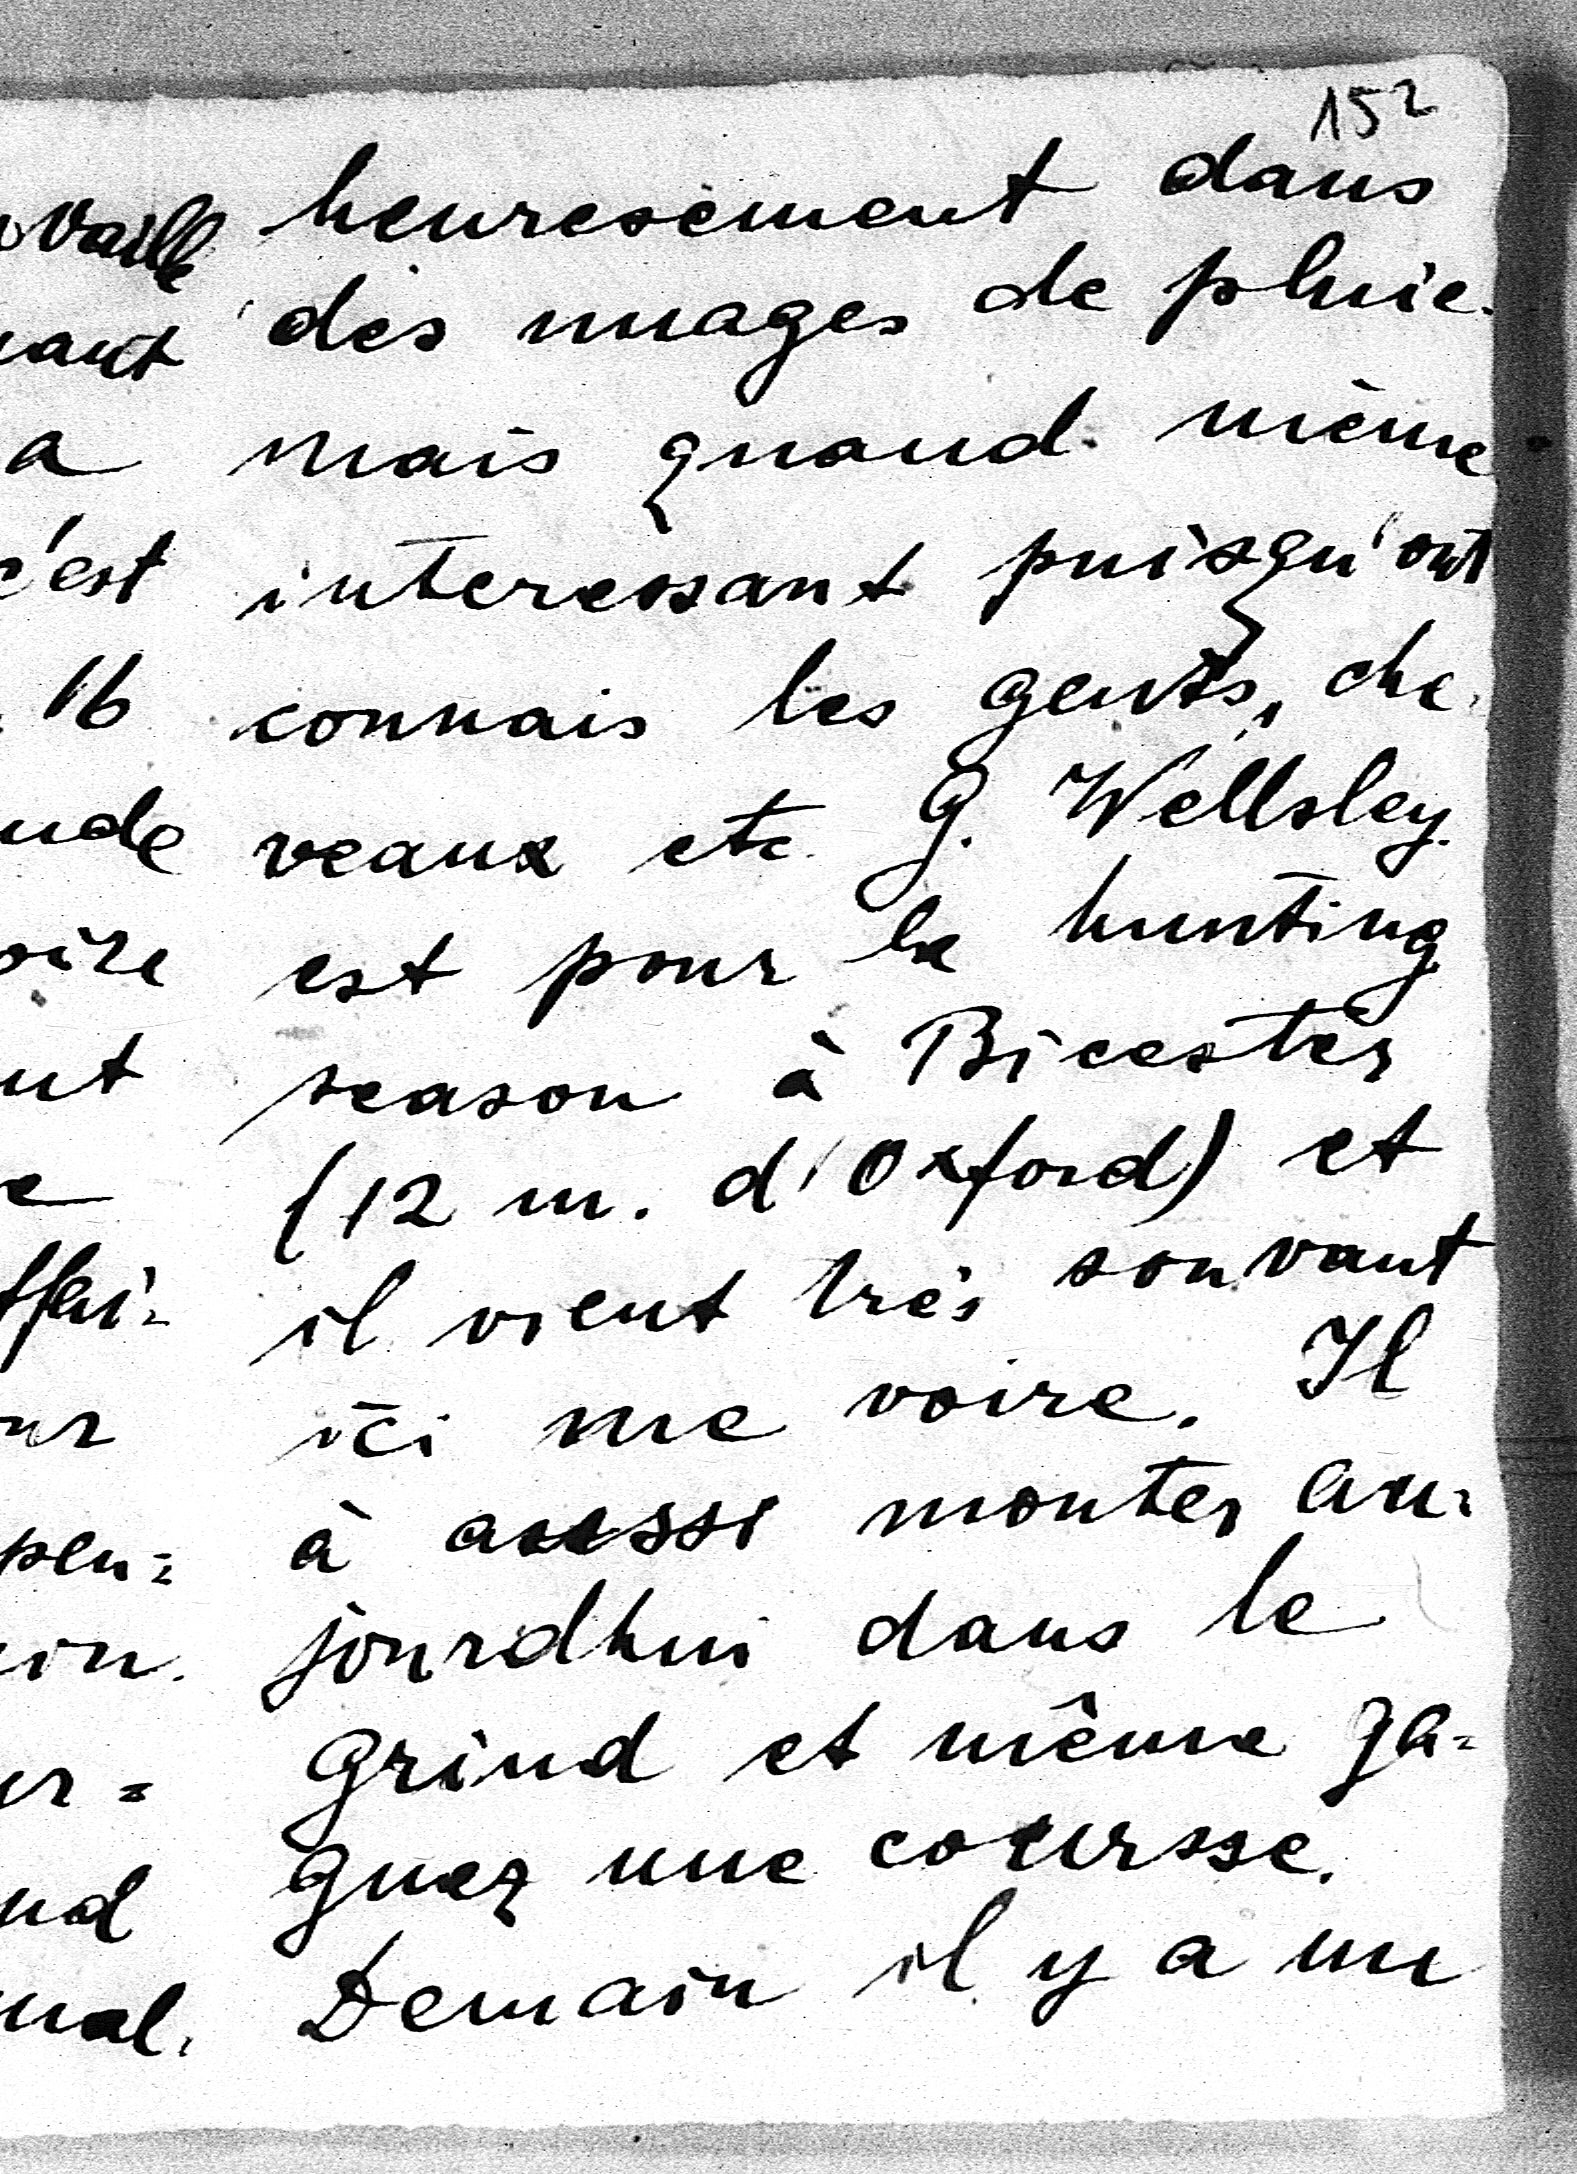 152
heuresement dans
des nuages de pluie.
mais quand même
interessant puisqu'ont
connais les gents, che-
veaux etc. G. Wellsley.
est pour la hunting
season à Bicester
(12 m. d'Oxford) et
il vient très souvant
ici me voire. Il
à aussi monter au-
jourdhui dans le
Grind et même ga-
gnez une coursse.
Demain il y a un
vaille
a
c'est
16
mal.